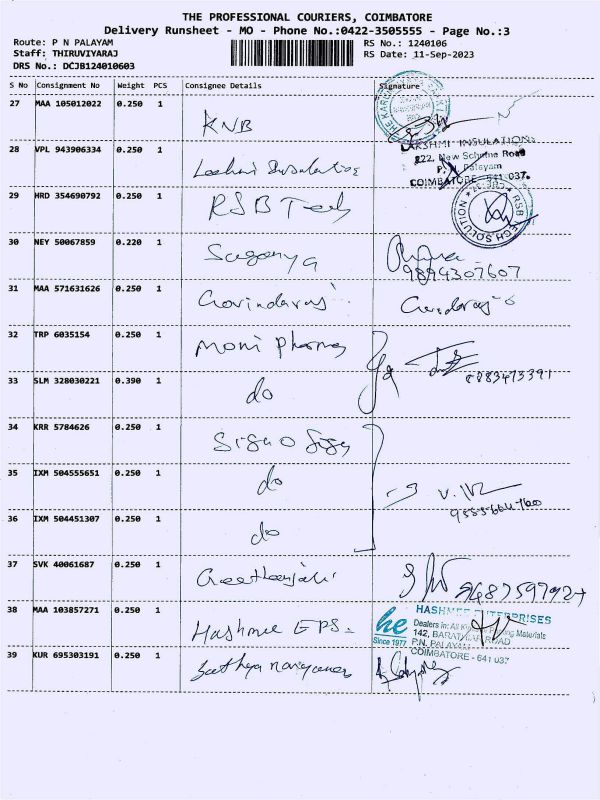 THE PROFESSIONAL COURIERS, COIMBATORE
Delivery Runsheet - MO - Phone No.:0422-3505555 - Page No.:3
Route: P N PALAYAM RS No.: 1240106
Staff: THIRUVIYARAJ RS Date: 11-Sep-2023
DRS No.: DCJB124010603
S No Consignment No Weight PCS Consignee Details Signature
27 MAA 105012022 0.250 1 KNB
28 VPL 943906334 0.250 1 LAKSHMI INSULATION
222, New Scheme Road
P. N. Palayam
COIMBATORE - 641 037.
29 HRD 354690792 0.250 1 RSB Tech RSB TECH SOLUTION
30 NEY 50067859 0.220 1 Suganya
9894307607
31 MAA 571631626 0.250 1 Govindaraj Govindaraj
32 TRP 6035154 0.250 1 Moni Pharma
8883473391
33 SLM 328030221 0.390 1 do
34 KRR 5784626 0.250 1
35 IXM 504555651 0.250 1 do
36 IXM 504451307 0.250 1 do
37 SVK 40061687 0.250 1 Geethanjali
9487597927
38 MAA 103857271 0.250 1 Hashmee EPS
he Since 1977
HASHMEE ENTERPRISES
Dealers in: All Materials
142,
P.N. PALAYAM
COIMBATORE - 641 037
39 KUR 695303191 0.250 1 Sathya narayanan